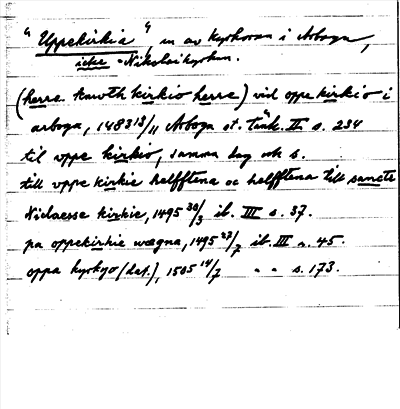 "Uppekirkia", en av kyrkorna i Arboga,
icke = Nikolaikyrkan.
(herre knwth kirkio herre) vid oppe kirkio i
arboga, 1483 13/11 Arboga st. tänk. II s. 234
til vppe kirkio, samma dag och s.
till vppe kirkie helfftena oc helfftena till sancte
Niclaesse kirkie, 1495 30/3 ib. III s. 37.
pa oppekirkie wægna, 1495 27/7 ib. III s. 45.
oppa kyrkyo (dat.), 1505 14/7 " " s. 173.